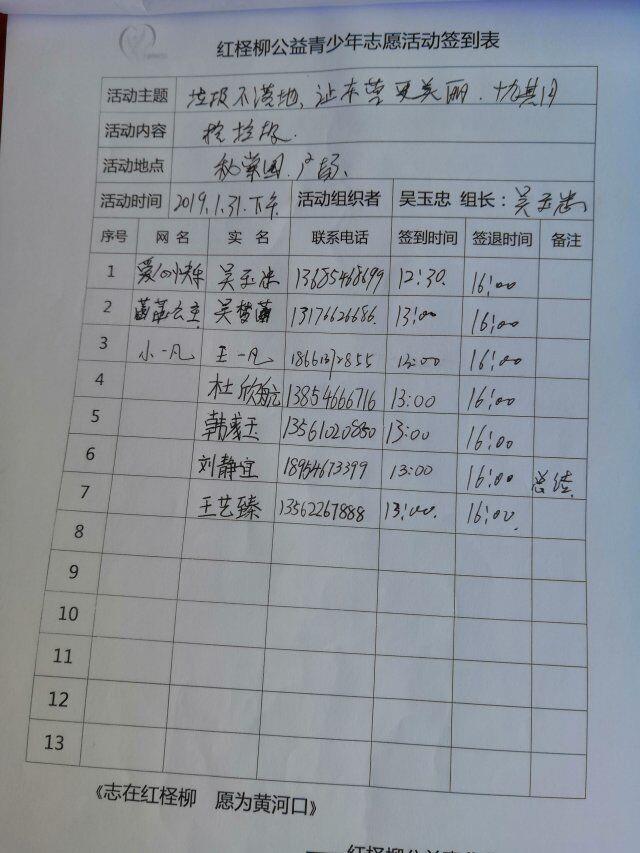 红柽柳公益青少年志愿活动签到表
活动主题 垃圾不落地、让东营更美丽.
活动内容 捡垃圾.
活动地点 广场.
活动时间 2019.1.31.下午 活动组织者 吴玉忠 组长：吴玉忠
序号 网名 实名 联系电话 签到时间 签退时间 备注
1 爱心快乐 吴玉忠 13685468699 12:30. 16:00
2 吴梦菡 13176626686. 13:00 16:00
3 小一凡 王一凡 18661372855 13:00 16:00
4 杜欣航 13854666716 13:00 16:00
5 13561020850 13:00 16:00
6 刘静宜 18954673399 13:00 16:00 总结.
7 王艺臻 13562267888 13:00. 16:00.
8
9
10
11
12
13
《志在红柽柳 愿为黄河口》